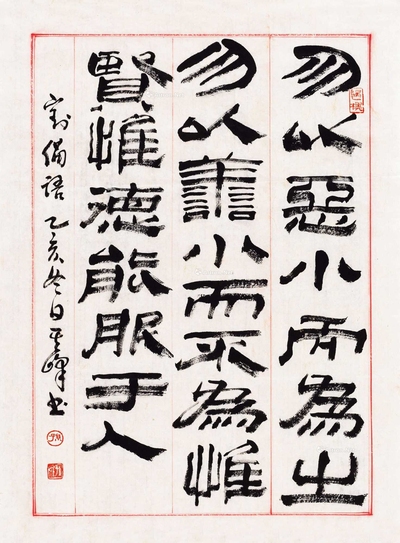 勿以惡小而為之
勿以譱小而不為惟
賢惟德能服于人
劉備語乙亥冬日其峰书